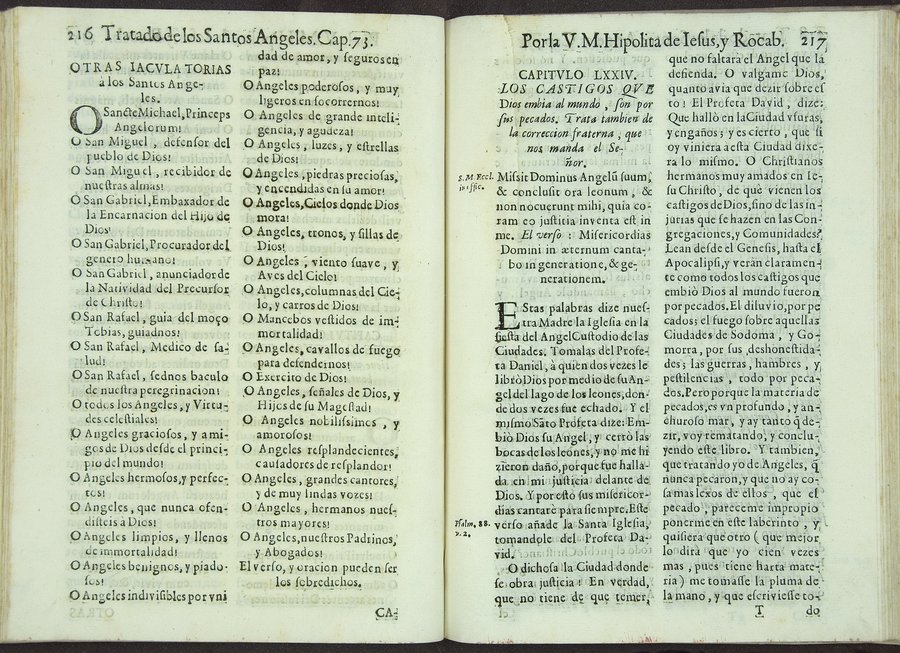 216 Tratado de los Santos Angeles. Cap. 73.
OTRAS IACVLATORIAS
a los Santos Ange-
les.
O Sancte Michael, Princeps
Angelorum!
O San Miguel, defensor del
pueblo de Dios!
O San Miguel, recibidor de
nuestras almas!
O San Gabriel, Embaxador de
la Encarnacion del Hijo de
Dios!
O San Gabriel, Procurador del
genero humano!
O San Gabriel, anunciador de
la Natividad del Precursor
de Christo!
O San Rafael, guia del moço
Tobias, guiadnos!
O San Rafael, Medico de sa-
lud!
O San Rafael, sednos baculo
de nuestra peregrinacion!
O todos los Angeles, y Virtu-
des celestiales!
O Angeles graciosos, y ami-
gos de Dios desde el princi-
pio del mundo!
O Angeles hermosos, y perfec-
tos!
O Angeles, que nunca ofen-
disteis à Dios!
O Angeles limpios, y llenos
de immortalidad!
O Angeles benignos, y piado-
sos!
O Angeles indivisibles por vni
OTRAS
dad de amor, y seguros en
paz!
O Angeles poderosos, y muy
ligeros en socorrernos!
O Angeles de grande inteli-
gencia, y agudeza!
O Angeles, luzes, y estrellas
de Dios!
O Angeles, piedras preciosas,
y encendidas en su amor!
O Angeles, Cielos donde Dios
mora!
O Angeles, tronos, y sillas de
Dios!
O Angeles, viento suave, y
Aves del Cielo!
O Angeles, columnas del Cie-
lo, y carros de Dios!
O Mancebos vestidos de im-
mortalidad!
O Angeles, cavallos de fuego
para defendernos!
O Exercito de Dios!
O Angeles, señales de Dios, y
Hijos de su Magestad!
O Angeles nobilissimos, y
amorosos!
O Angeles resplandecientes,
causadores de resplandor!
O Angeles, grandes cantores,
y de muy lindas vozes!
O Angeles, hermanos nues-
tros mayores!
O Angeles, nuestros Padrinos,
y Abogados!
El verso, y oracion pueden ser
los sobredichos.
CA-
Por la V. M. Hipolita de Iesus, y Rocab. 217
CAPITVLO LXXIV.
LOS CASTIGOS QVE
Dios embia al mundo, son por
sus pecados. Trata tambien de
la correccion fraterna, que
nos manda el Se-
ñor.
S. M. Eccl.
in offic.
Missit Dominus Angelū suum,
& conclusit ora leonum, &
non nocuerunt mihi, quia co-
ram eo justitia inventa est in
me. El verso: Misericordias
Domini in æternum canta-
bo in generatione, & ge-
nerationem.
Estas palabras dize nues-
tra Madre la Iglesia en la
fiesta del Angel Custodio de las
Ciudades. Tomalas del Profe-
ta Daniel, à quien dos vezes le
librò Dios por medio de su An-
gel del lago de los leones, don-
de dos vezes fue echado. Y el
mismo Sāto Profeta dize: Em-
biò Dios su Angel, y cerrò las
bocas de los leones, y no me hi
zieron daño, porque fue halla-
da en mi justicia delante de
Dios. Y por esto sus misericor-
dias cantarè para siempre. Este
Psalm. 88.
v. 2.
verso añade la Santa Iglesia,
tomandole del Profeta Da-
vid.
O dichosa la Ciudad donde
se obra justicia! En verdad,
que no tiene de que temer,
que no faltarà el Angel que la
defienda. O valgame Dios,
quanto avia que dezir sobre es
to! El Profeta David, dize:
Que hallò en la Ciudad vsuras,
y engaños; y es cierto, que si
oy viniera a esta Ciudad dixe-
ra lo mismo. O Christianos
hermanos muy amados en Ie-
su Christo, de què vienen los
castigos de Dios, sino de las in-
jurias que se hazen en las Con-
gregaciones, y Comunidades?
Lean desde el Genesis, hasta el
Apocalipsi, y veràn claramen-
te como todos los castigos que
embiò Dios al mundo fueron
por pecados. El diluvio, por pe
cados; el fuego sobre aquellas
Ciudades de Sodoma, y Go-
morra, por sus deshonestida-
des; las guerras, hambres, y
pestilencias, todo por peca-
dos. Pero porque la materia de
pecados, es vn profundo, y an-
churoso mar, y ay tanto q̃ de-
zir, voy rematando, y conclu-
yendo este libro. Y tambien,
que tratando yo de Angeles, q̃
nunca pecaron, y que no ay co-
sa mas lexos de ellos, que el
pecado, pareceme impropio
ponerme en este laberinto, y
quisiera que otro (que mejor
lo dirà que yo cien vezes
mas, pues tiene harta mate-
ria) me tomasse la pluma de
la mano, y que escriviesse to-
T do